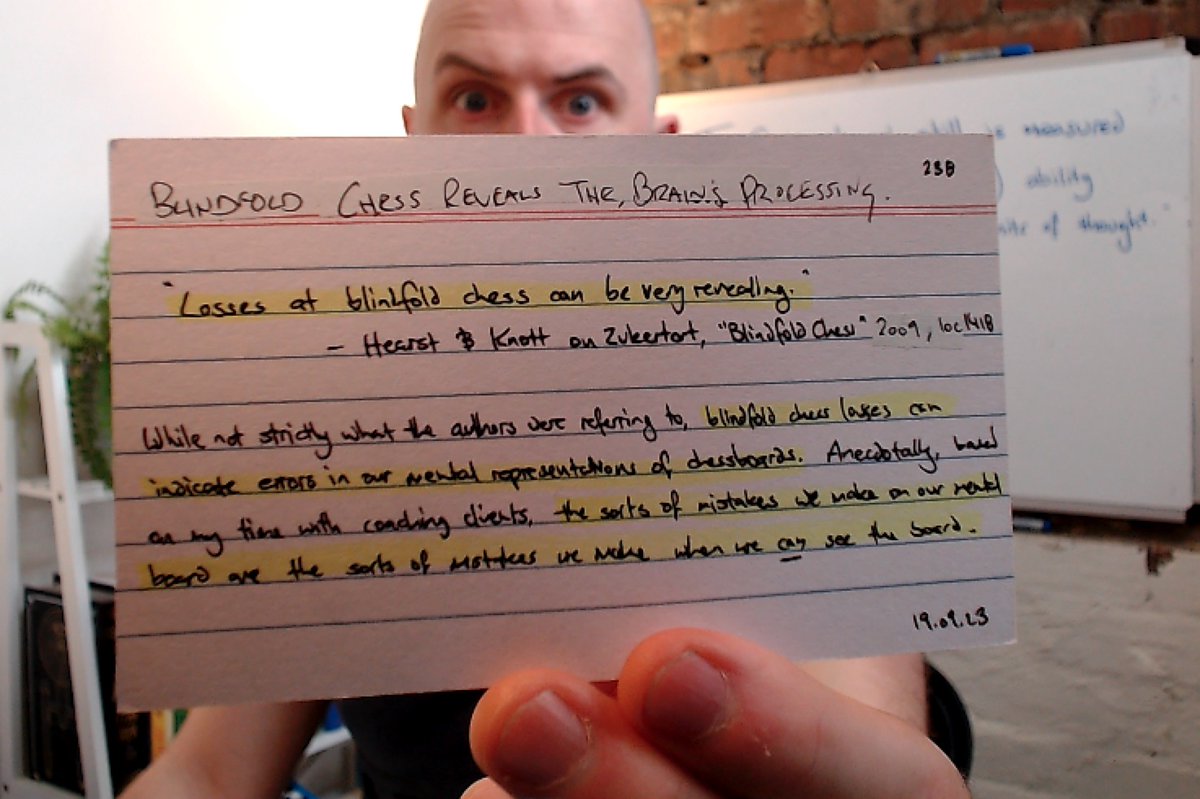 238
BLINDFOLD CHESS REVEALS THE BRAIN'S PROCESSING.
"Losses at blindfold chess can be very revealing."
— Hearst & Knott on Zukertort, "Blindfold Chess" 2009, loc 1418
While not strictly what the authors were referring to, blindfold chess losses can
indicate errors in our mental representations of chessboards. Anecdotally, based
on my time with coaching clients, the sorts of mistakes we make on our mental
board are the sorts of we make when we can see the board.
19.09.23
is measured
ability
of thought."